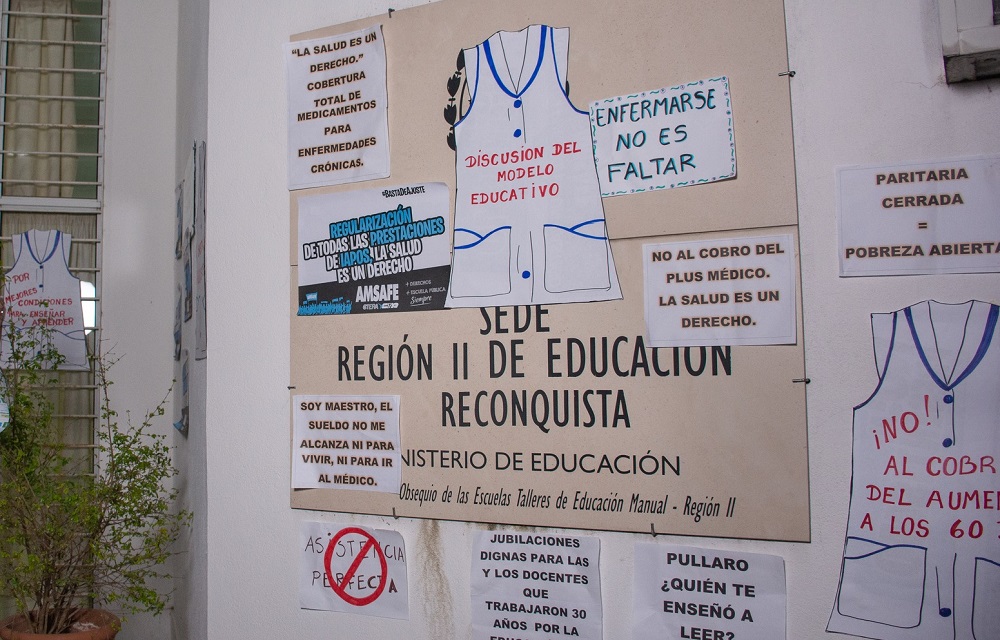 "LA SALUD ES UN
DERECHO."
COBERTURA
TOTAL DE
MEDICAMENTOS
PARA
ENFERMEDADES
CRÓNICAS.
DISCUSION DEL
MODELO
EDUCATIVO
ENFERMARSE
NO ES
FALTAR
#BASTADEAJUSTE
REGULARIZACIÓN
DE TODAS LAS PRESTACIONES
DE IAPOS, LA SALUD
ES UN DERECHO
AMSAFE
+ DERECHOS
+ ESCUELA PÚBLICA
Siempre
NO AL COBRO DEL
PLUS MÉDICO.
LA SALUD ES UN
DERECHO.
PARITARIA
CERRADA
=
POBREZA ABIERTA
POR
MEJORES
CONDICIONES
PARA ENSEÑAR
Y APRENDER
SEDE
REGIÓN II DE EDUCACIÓN
RECONQUISTA
NISTERIO DE EDUCACIÓN
Obsequio de las Escuelas Talleres de Educación Manual - Región II
SOY MAESTRO, EL
SUELDO NO ME
ALCANZA NI PARA
VIVIR, NI PARA IR
AL MÉDICO.
¡NO!
AL COBR
DEL AUME
A LOS 60
ASISTENCIA
PERFECTA
JUBILACIONES
DIGNAS PARA LAS
Y LOS DOCENTES
QUE
TRABAJARON 30
AÑOS POR LA
PULLARO
¿QUIÉN TE
ENSEÑÓ A
LEER?